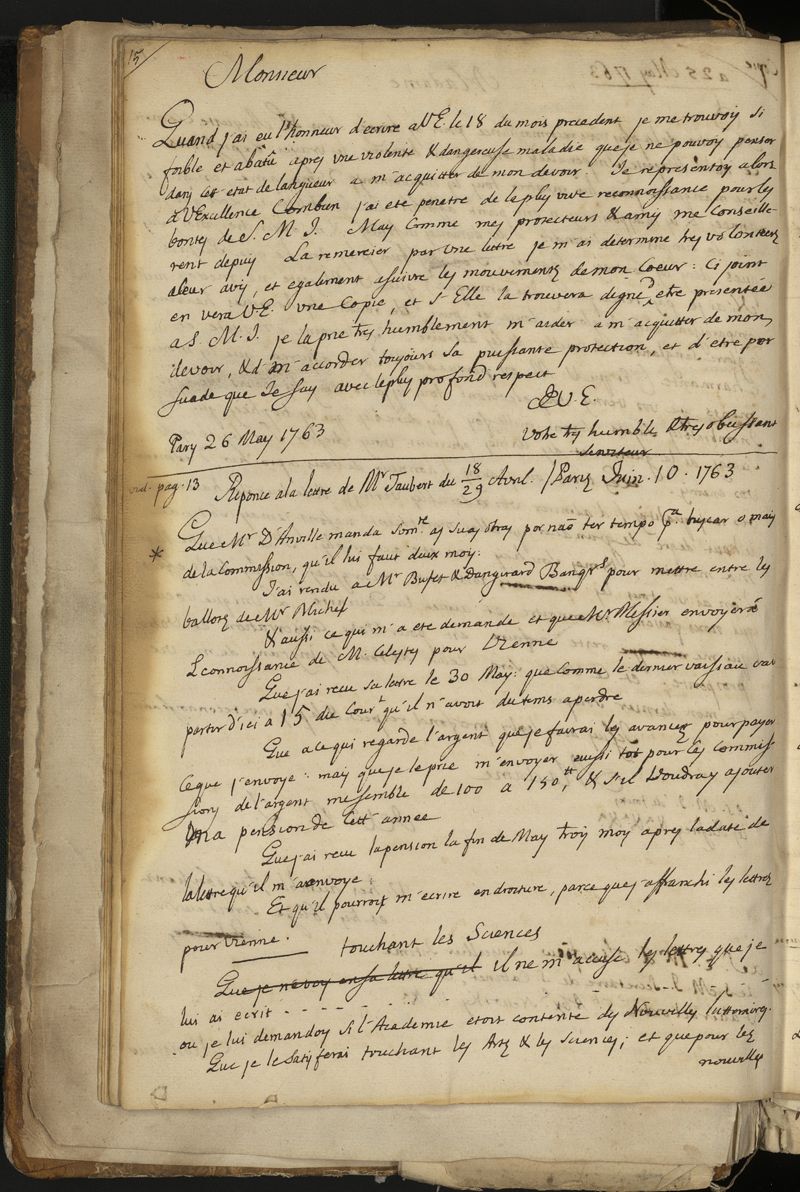 15
Monsieur
Quand j'ai eu l'honneur d'ecrire a V E. le 18 du mois precedent je me trouvoy si
foible et abatû apres une violente & dangereuse maladie que je ne pouvoy penser
dans cet etat de langueur a m'acquitter de mon devoir. Je representoy alors
a V Excellence Combien j'ai eté penetré de la plus vive reconnoissance pour les
bontes de S. M. J. May Comme mes protecteurs & amis me Conseille-
rent depuis La remercier par une lettre je m'ai determiné tres volontiers
a leur avis, et egalement a suivre les mouvements de mon Coeur: Ci joint
en vera V E. une Copie, et s'Elle la trouvera digne d'etre presentée
a S. M. J. je la prie tres humblement m'aider a m'acquitter de mon
devoir, & d m'accorder toujours sa puissante protection, et d'etre per
suadé que Je suy avec le plus profond respect
D V. E.
Pary 26 May 1763
Votre tres humble & tres obeissant
Serviteur
vid. pag. 13 Reponce a la lettre de Mr Taubert du 18/29 Avril. / Paris Juin. 10. 1763
* Que Mr D'Anville manda somte as suas obras por naõ ter tempo pa. buscar o mais
de la Commission, qu'il lui faut deux moy.
J'ai rendu a Mr Bufet & Dangirard Bangrs pour mettre entre les
ballots de Mr Michel
& aussi ce qui m'a eté demandé et que Mr Messier envoyera
L connoissance de M. Celesty pour Vienne
Que j'ai recu sa lettre le 30 May: que Comme le dernier vaisseau va
partir d'ici a 15 du Court qu'il n'avoit du tems a perdre
Que a ce qui regarde l'argent que je fairai les avances pour payer
ce que j'envoye: may que je le prie m'envoyer aussi tot pour les commis
sions de l'argent me semble de 100 a 150 tt, & s'il Voudray ajouter
ma pension de cett année
Que j'ai recu la pension la fin de May trois moy apres la date de
la lettre qu'il m'a envoyé
Et qu'il pourroit m'ecrire en droiture, parce que j'affranchi les lettres
pour Vienne.
touchant les Sciences
Que je ne voy en sa lettre qu'il il ne m'accuse les lettres que je
lui ai ecrit - - - - - - -
ou je lui demandoy si l'Academie etoit contente des Nouvelles
Que je le satisferai touchant les Arts & les Sciences; et que pour les
nouvelles